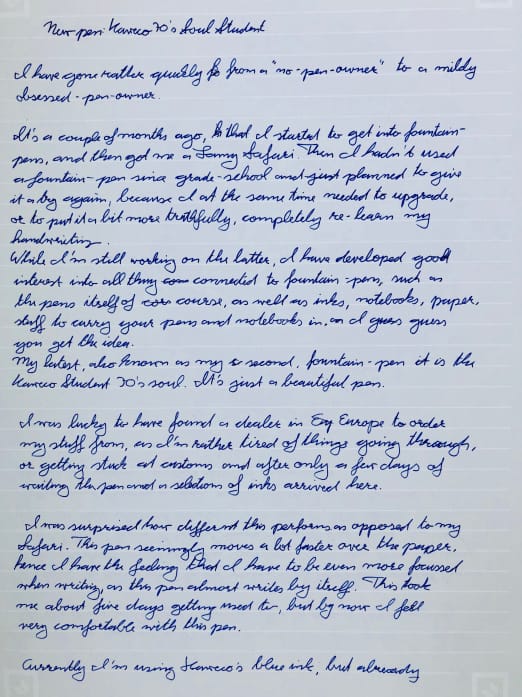 New pen: Kaweco 70's Soul Student
I have gone rather quickly fo from a "no-pen-owner" to a mildly
obsessed-pen-owner.
It's a couple of months ago, that I started to get into fountain-
pens, and then got me a Lamy Safari. Then I hadn't used
a fountain-pen since grade-school and just planned to give
it a try again, because I at the same time needed to upgrade,
or to put it a bit more truthfully, completely re-learn my
handwriting.
While I'm still working on the latter, I have developed good
interest into all thing connected to fountain-pens, such as
the pens itself of course, as well as inks, notebooks, paper,
stuff to carry your pens and notebooks in, I guess guess
you get the idea.
My latest, also known as my second, fountain-pen it is the
Kaweco Student 70's soul. It's just a beautiful pen.
I was lucky to have found a dealer in Europe to order
my stuff from, as I'm rather tired of things going through,
or getting stuck at customs and after only a few days of
waiting the pen and a selections of inks arrived here.
I was surprised how different this performs as opposed to my
Safari. This pen seemingly moves a lot faster over the paper,
hence I have the feeling that I have to be even more focussed
when writing, as this pen almost writes by itself. This took
me about five days getting used to, but by now I fell
very comfortable with this pen.
Currently I'm using Kaweco's blue ink, but already